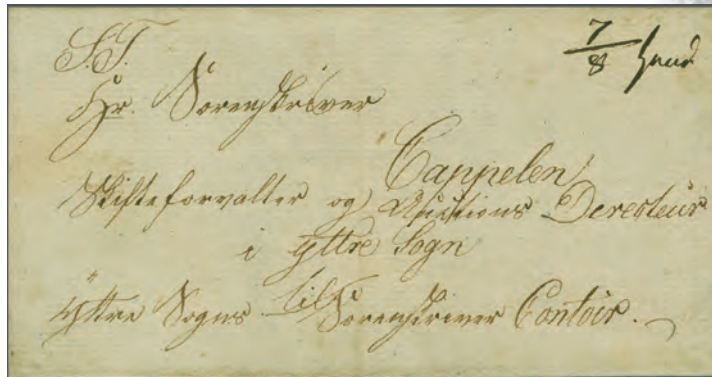 S.T.
7/8
Hr. Sorenskriver
Cappelen
Skifteforvalter og Auctions Derecteur
i Yttre Sogn
til
Yttre Sogns Sorenskriver Contoir.